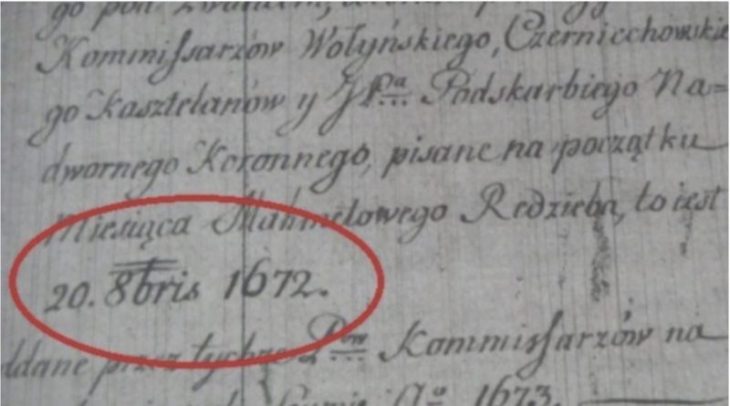 go pod
Kommissarzów Wołyńskiego, Czerniechowskie
go Kasztelanów y JPa Podskarbiego Na=
dwornego Koronnego, pisane na początku
Miesiąca Mahmetowego Redzieba, to iest
20. 8bris 1672.
ddane przez tychże Pow Kommissarzów na
Aº 1673.